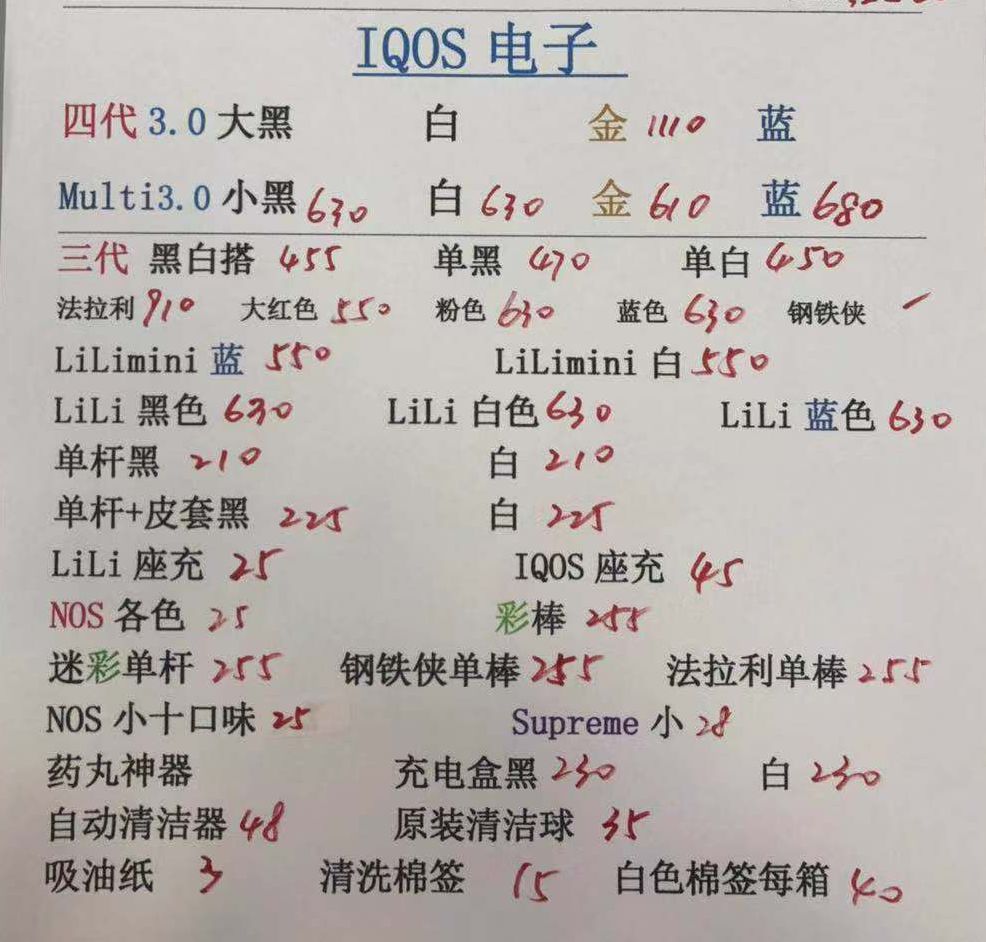 IQOS 电子
四代 3.0 大黑 白 金 1110 蓝
Multi3.0 小黑 630 白 630 金 610 蓝 680
三代 黑白搭 455 单黑 470 单白 450
法拉利 910 大红色 550 粉色 630 蓝色 630 钢铁侠
LiLimini 蓝 550 LiLimini 白 550
LiLi 黑色 630 LiLi 白色 630 LiLi 蓝色 630
单杆黑 210 白 210
单杆+皮套黑 225 白 225
LiLi 座充 25 IQOS 座充 45
NOS 各色 25 彩棒 255
迷彩单杆 255 钢铁侠单棒 255 法拉利单棒 255
NOS 小十口味 25 Supreme 小 28
药丸神器 充电盒黑 230 白 230
自动清洁器 48 原装清洁球 35
吸油纸 3 清洗棉签 15 白色棉签每箱 40